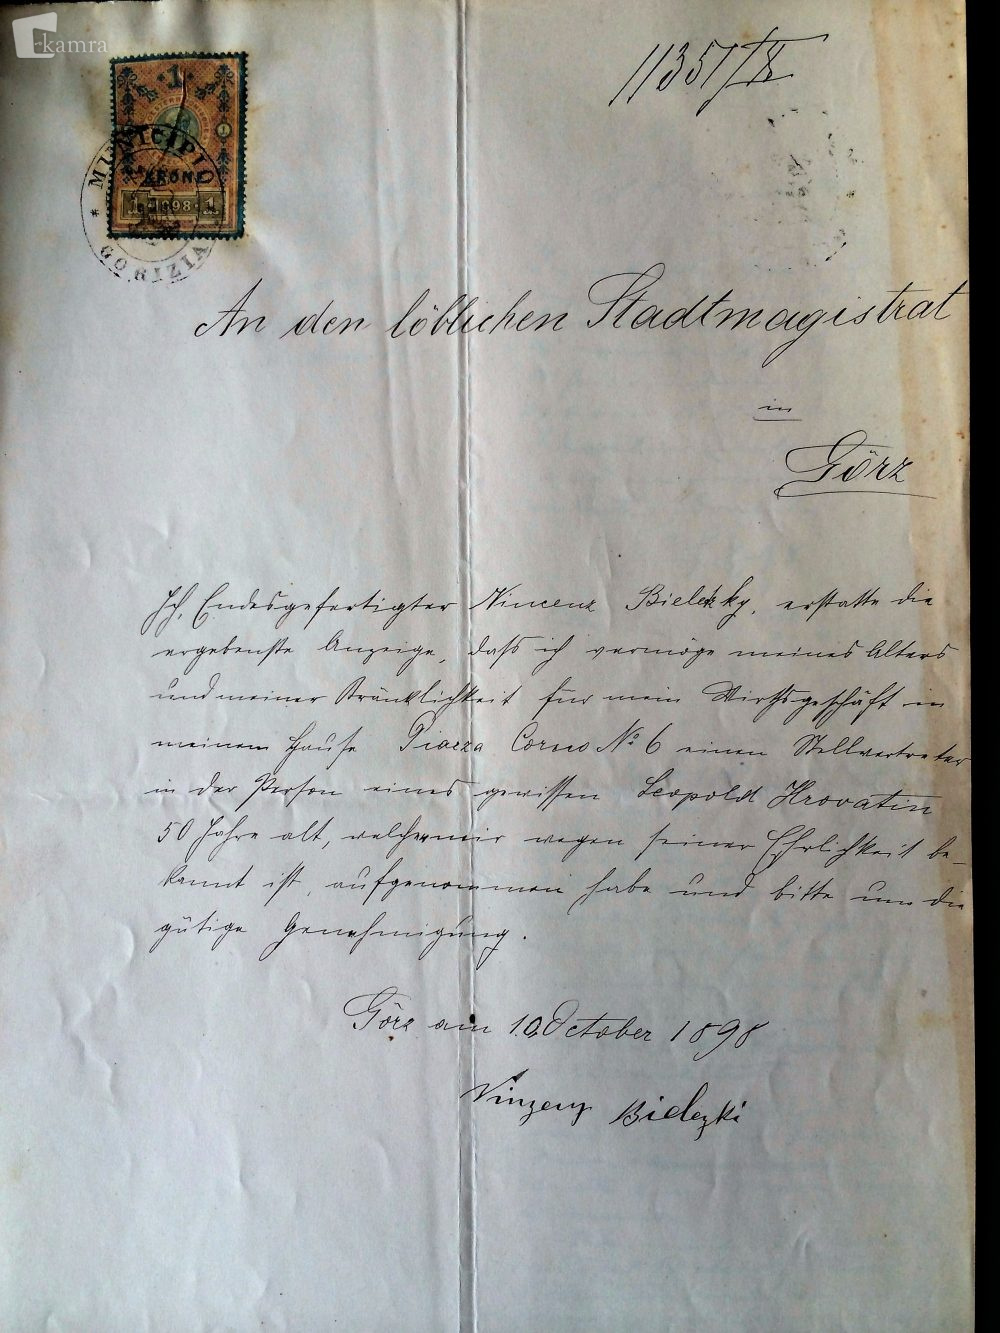 kamra
11351/IX
1
MUNICIPIO
KRONE
1 1898 1
GORIZIA
An den löblichen Stadtmagistrat
in
Görz
Ich, Endesgefertigter Vincenz Bielezky, erstatte die
ergebenste Anzeige, daß ich vermöge meines Alters
und meiner Kränklichkeit für mein Wirthsgeschäft in
meinem Hause Piazza Corno No 6 einen Stellvertreter
in der Person eines gewissen Leopold Hrovatin
50 Jahre alt, welcher mir wegen seiner Ehrlichkeit be-
kannt ist, aufgenommen habe und bitte um die
gütige Genehmigung.
Görz am 10 October 1898
Vinzenz Bielezki